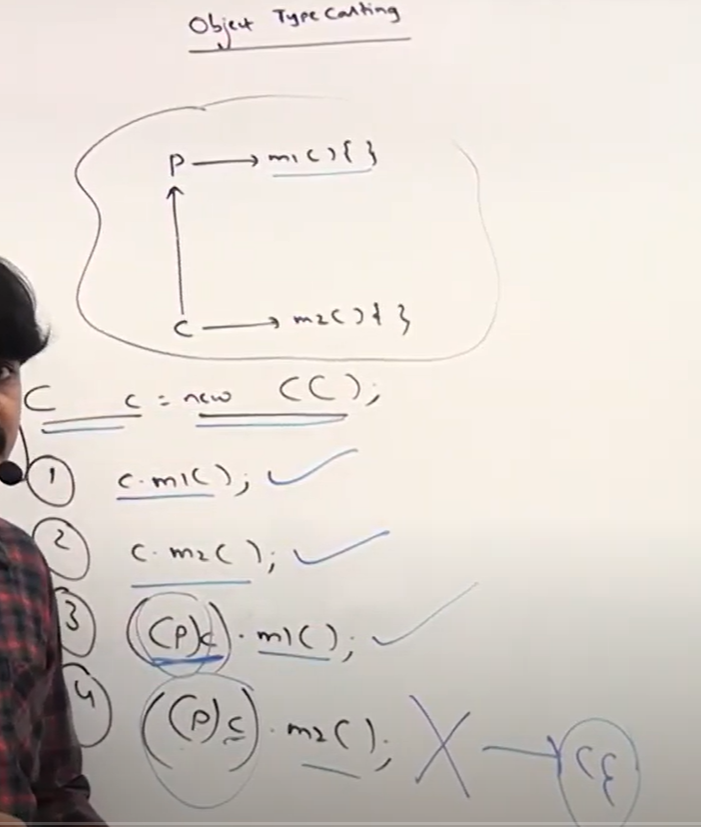 Object Type Casting
P → m1() { }
C → m2() { }
C c = new C();
1 c.m1(); ✓
2 c.m2(); ✓
3 ((P)c).m1(); ✓
4 ((P)c).m2(); X → CE